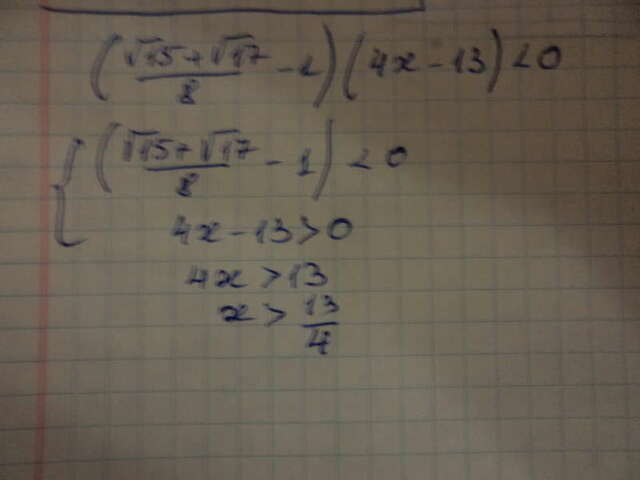 (√15+√17/8 - 1)(4x-13)<0
{(√15+√17/8 - 1)<0
4x-13>0
4x>13
x>13/4